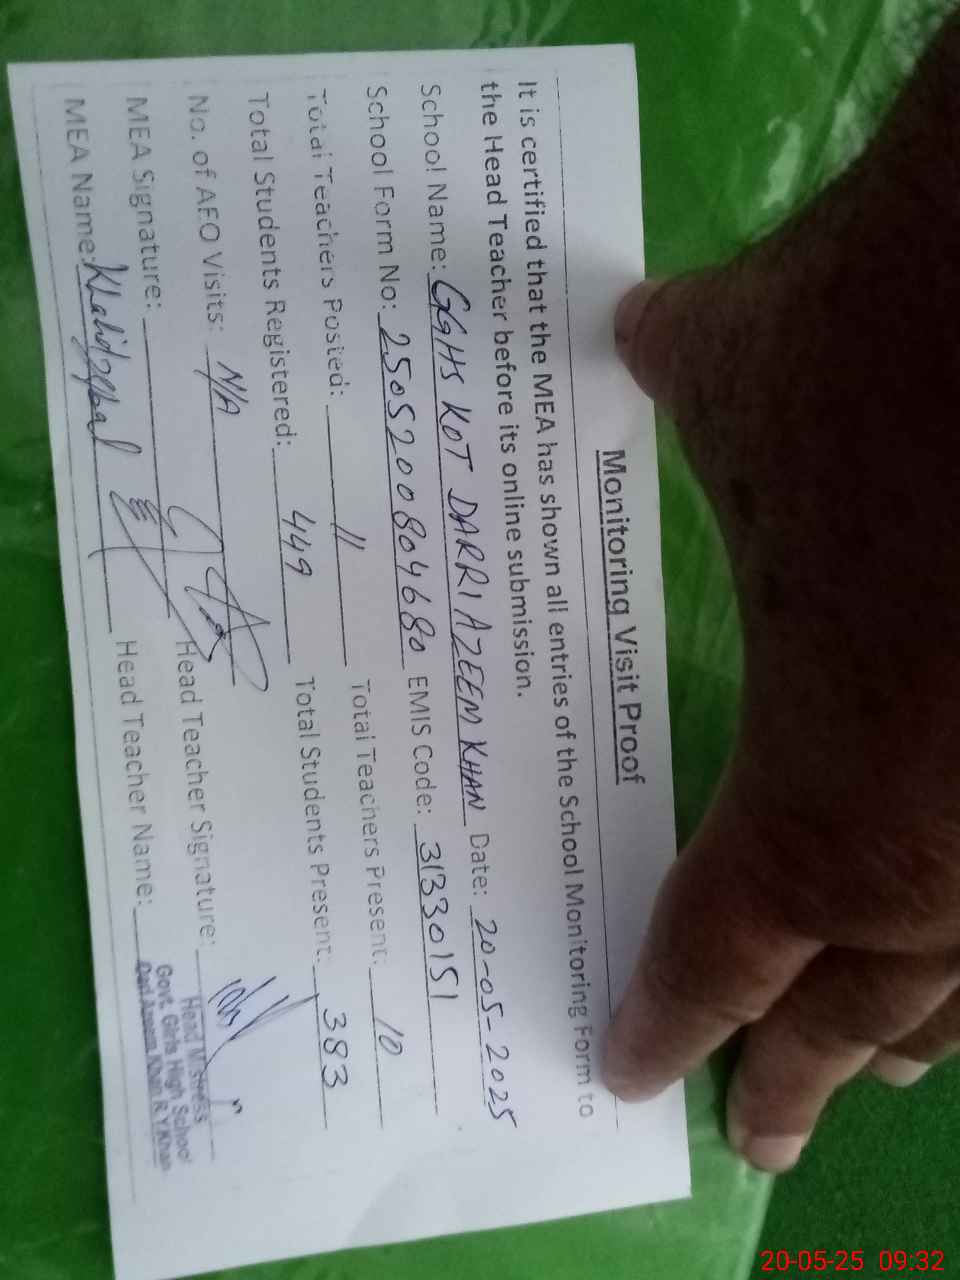 Monitoring Visit Proof
It is certified that the MEA has shown all entries of the School Monitoring Form to
the Head Teacher before its online submission.
School Name: GGHS KOT DARRI AZEEM KHAN Date: 20-05-2025
School Form No: 2505200804680 EMIS Code: 31330151
Total Teachers Posted: 11 Total Teachers Present: 10
Total Students Registered: 449 Total Students Present: 383
No. of AEO Visits: N/A
MEA Signature: Head Teacher Signature:
MEA Name: Khalid Iqbal Head Teacher Name:
Head Mistress
Govt. Girls High School
Dari Azeem Khan R.Y.Khan
20-05-25 09:32